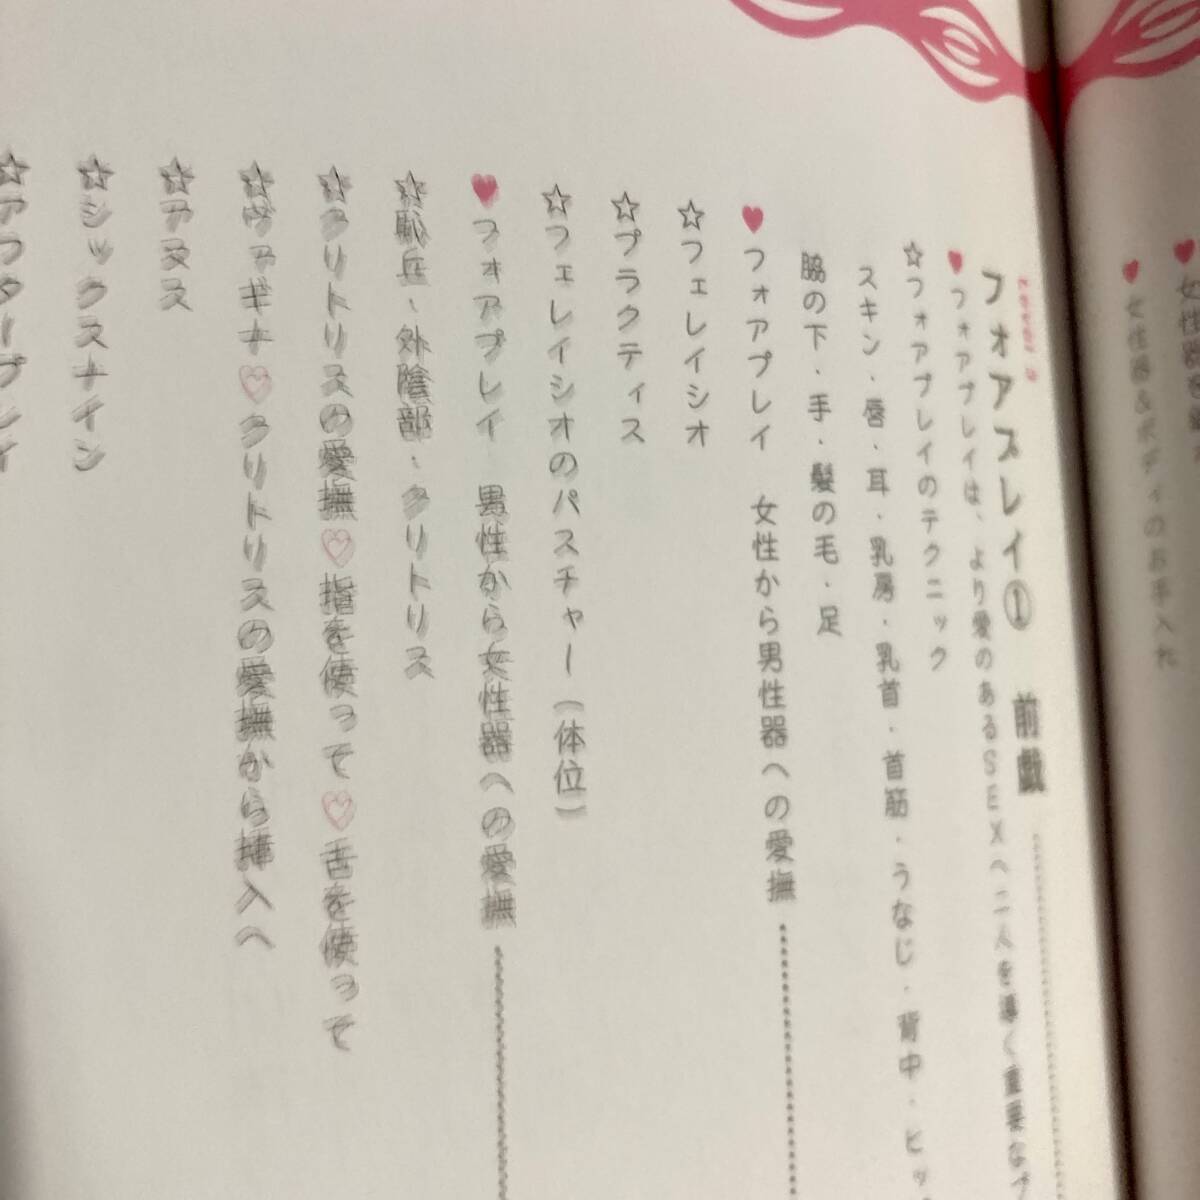 ♥女性器
♥女性器&ボディのお手入れ
フォアプレイ① 前戯
♥フォアプレイは、より愛のあるSEXへ二人を導く重要なプ
☆フォアプレイのテクニック
スキン・唇・耳・乳房・乳首・首筋・うなじ・背中・ヒッ
脇の下・手・髪の毛・足
♥フォアプレイ 女性から男性器への愛撫
☆フェレイシオ
☆プラクティス
☆フェレイシオのパスチャー(体位)
♥フォアプレイ 男性から女性器への愛撫
☆恥丘・外陰部・クリトリス
☆クリトリスの愛撫♡指を使って♡舌を使って
☆ヴァギナ♡クリトリスの愛撫から挿入へ
☆アヌス
☆シックスナイン
☆アフタープレイ